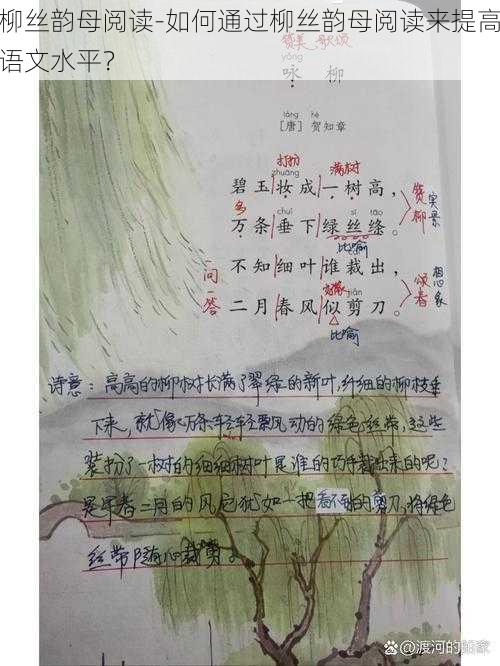 柳丝韵母阅读-如何通过柳丝韵母阅读来提高
语文水平？
赞美 歌颂
yǒng
咏 柳
táng hè
[唐] 贺知章
打扮 满树
zhuāng
碧玉妆成一树高，
多
chuí sī tāo
万条垂下绿丝绦。
赞柳
实景
比喻
不知细叶谁裁出，
问
一
答
jiǎn
二月春风似剪刀。
颂春
想象
比喻
诗意：高高的柳树长满了翠绿的新叶，纤细的柳枝垂
下来，就像万条轻轻飘动的绿色丝带，这些
装扮了一树的细细树叶是谁的巧手裁出来的呢？
是早春二月的风它犹如一把看不到的剪刀，将绿色
丝带随心裁剪。
渡河的船家